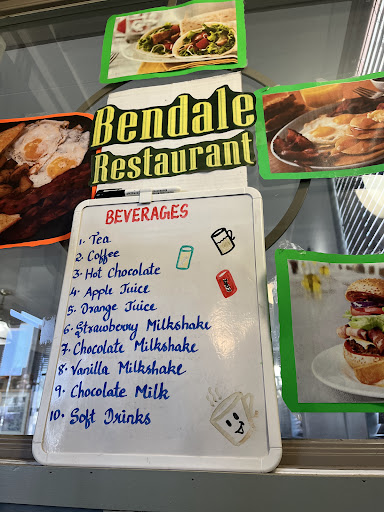 Bendale
Restaurant
BEVERAGES
1. Tea
2. Coffee
3. Hot Chocolate
4. Apple Juice
5. Orange Juice
6. Strawberry Milkshake
7. Chocolate Milkshake
8. Vanilla Milkshake
9. Chocolate Milk
10. Soft Drinks